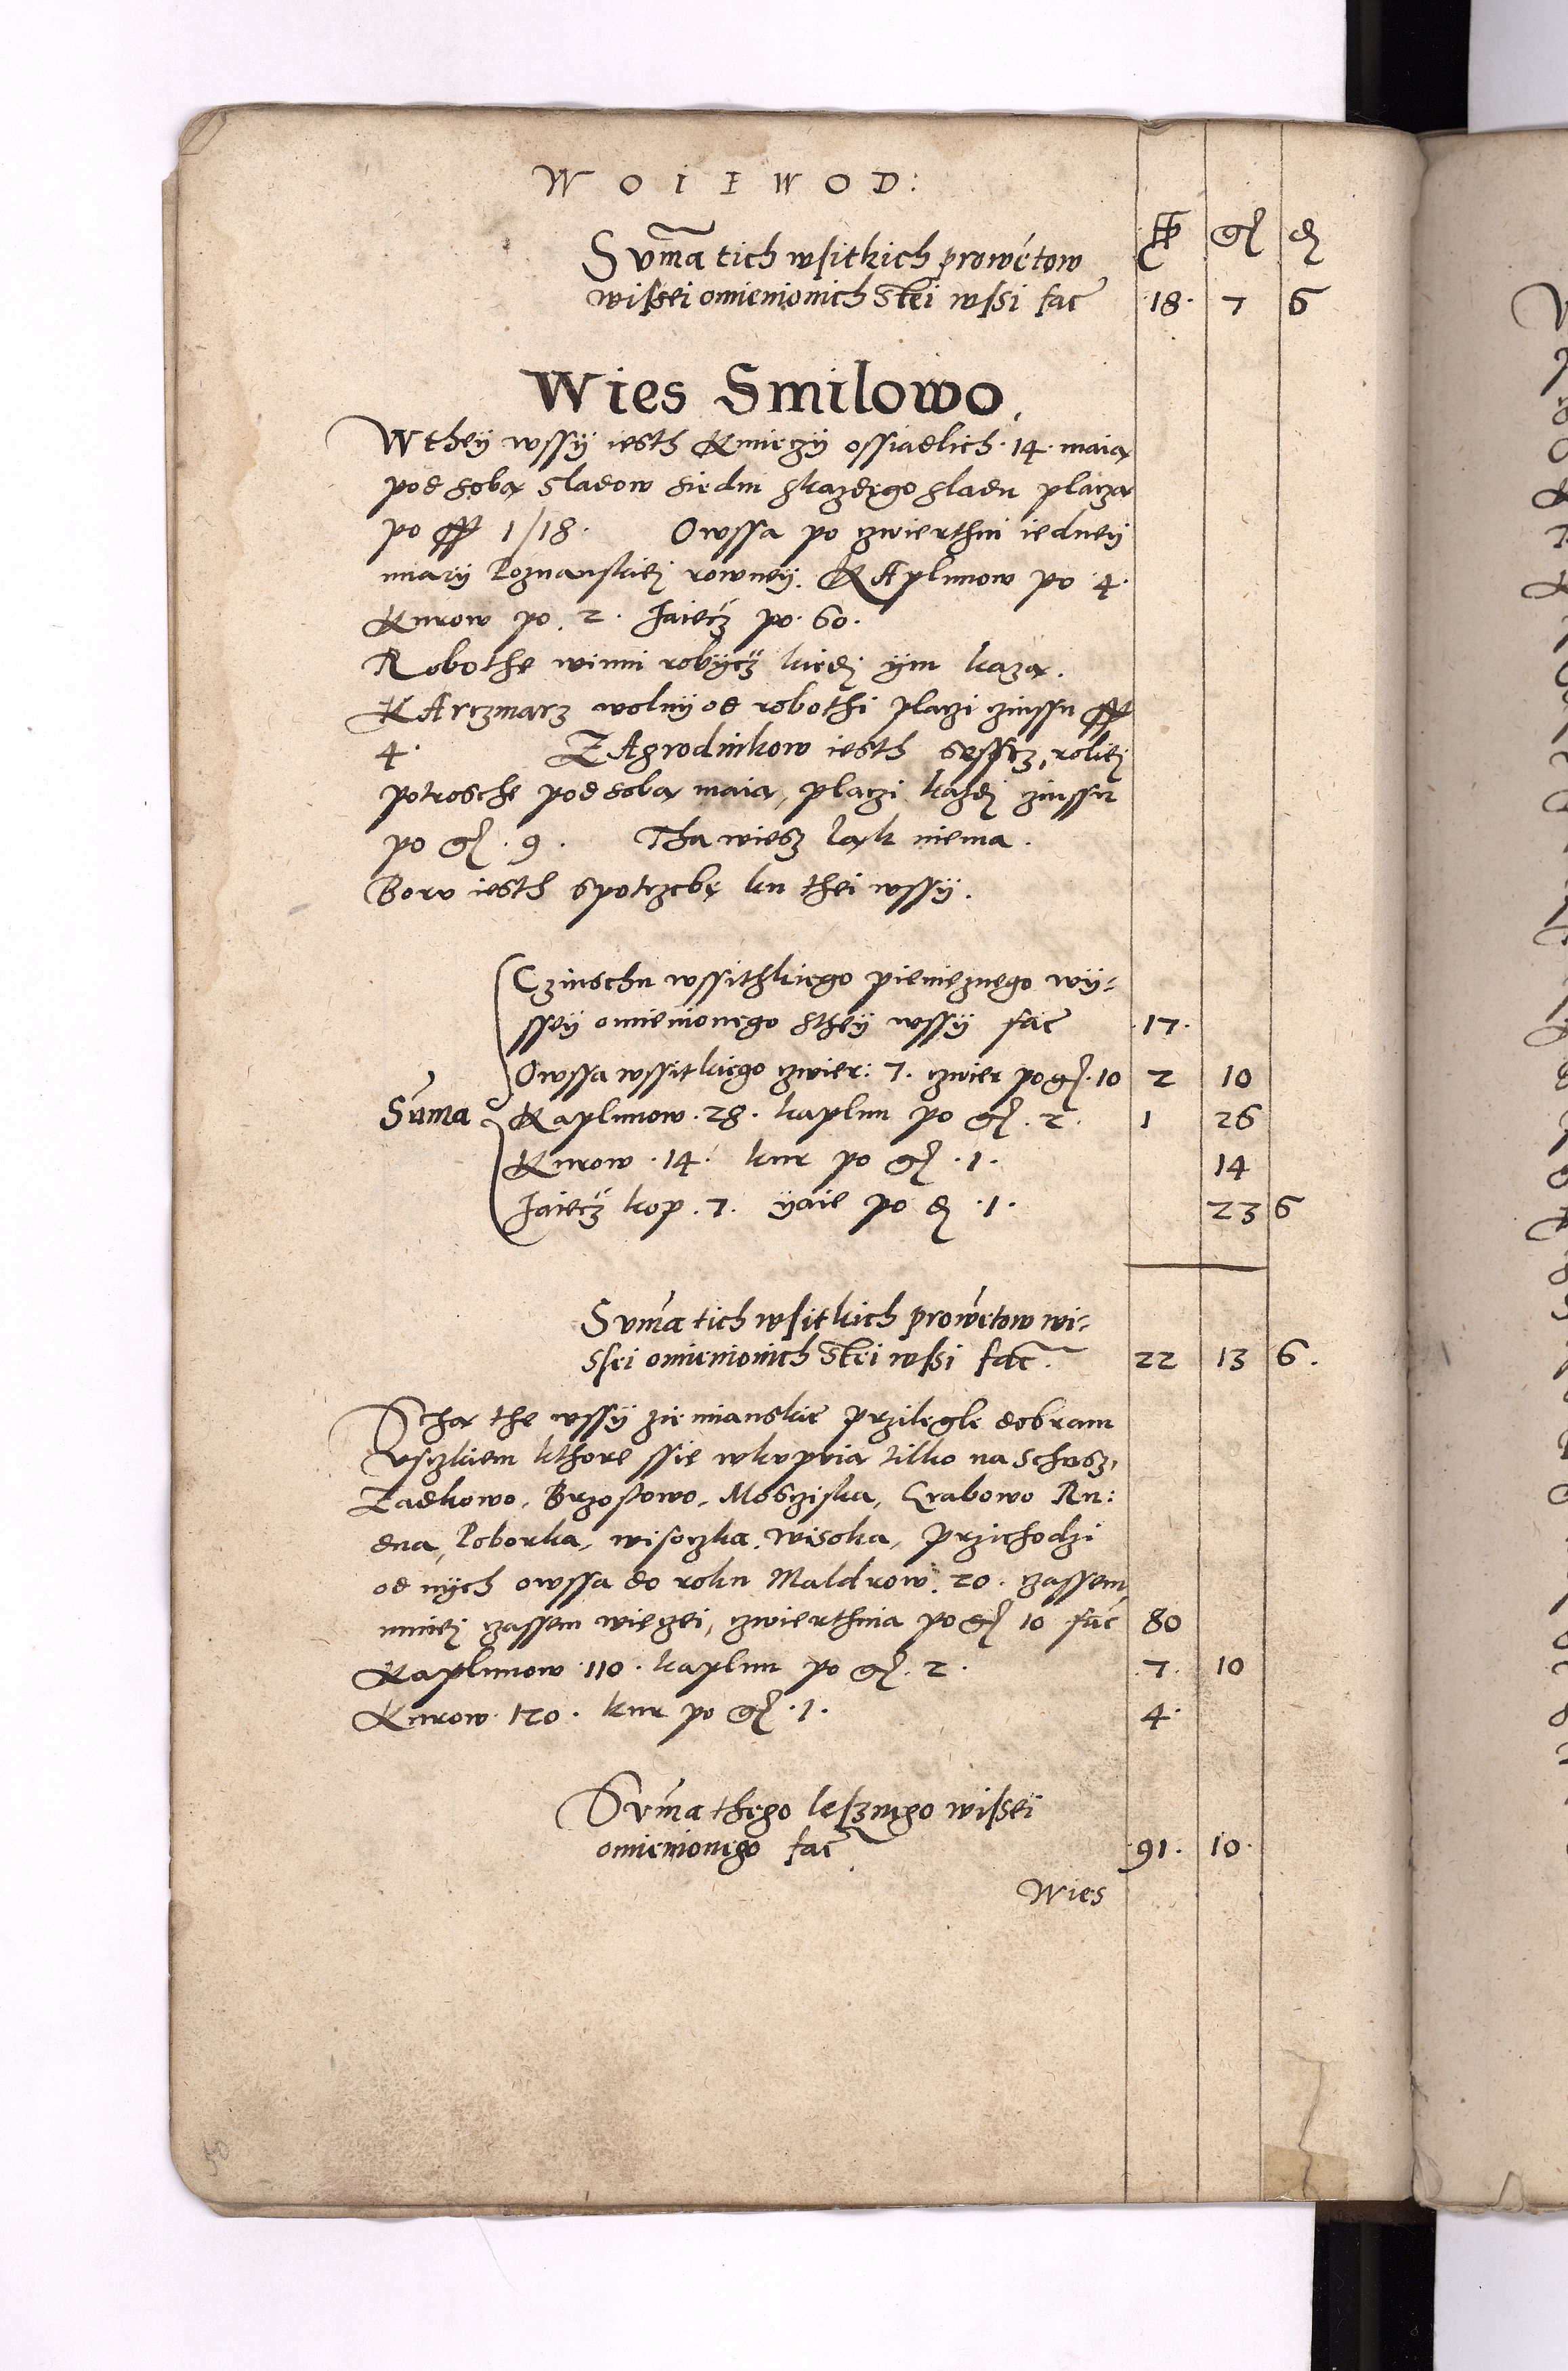 WOIEWOD:
fl gſ d
Suma tich wsitkich prowetow
wissei omienionich Stei wsi fac 18 7 6
Wies Smilowo
Wtheÿ wssÿ iesth Kmieczÿ ossiadlich 14 maia
pod soba sladow siedm skazdego sladu placza
po fl 1/18. Owssa po czwierthni iedneÿ
miarÿ Poznanskiej rowneÿ. KAplunow po 4.
Kurow po 2. Jaiecz po 60.
Robothe winni robÿcz kiedj ÿm kaza.
KArczmarz wolnÿ od robothi placzi czinssu fl
4. ZAgrodnikow iesth sesscz, roliej
potrosche pod soba maia, placzi kazdj czinssu
po gſ. 9. Tha wiesz lak niema.
Borv iesth spotrzebe ku thei wssÿ.
Czinschu wssithkiego pienieznego wÿ-
sseÿ omienionego stheÿ wssÿ fac 17.
Owssa wssitkiego czwier: 7. czwier po gſ. 10 2 10
Suma Kaplunow 28. kaplun po gſ. 2. 1 26
Kurow 14. kur po gſ. 1. 14
Jaiecz kop. 7. ÿaie po d. 1. 23 6
Suma tich wsitkich prowetow wi-
ssei omienionich Stei wsi fac. 22 13 6.
Scha the wssÿ ziemianskie przilegle dobram
Vsczkiem kthore ssie wkupvia tilko na Schosz,
Zadkowo, Brzostowo, Mosciska, Grabowo Ru:
dna, Poborka, wisoczka, wisoka, Przichodzi
od nÿch owssa do roku Maldrow 20. czassem
mniej czassem wieczei, czwierthnia po gſ 10 fac 80
Kaplunow 110. kaplun po gſ. 2. 7. 10
Kurow 120. kur po gſ. 1. 4.
Suma thego lesznego wissei
omienionego fac 91. 10.
Wies
50